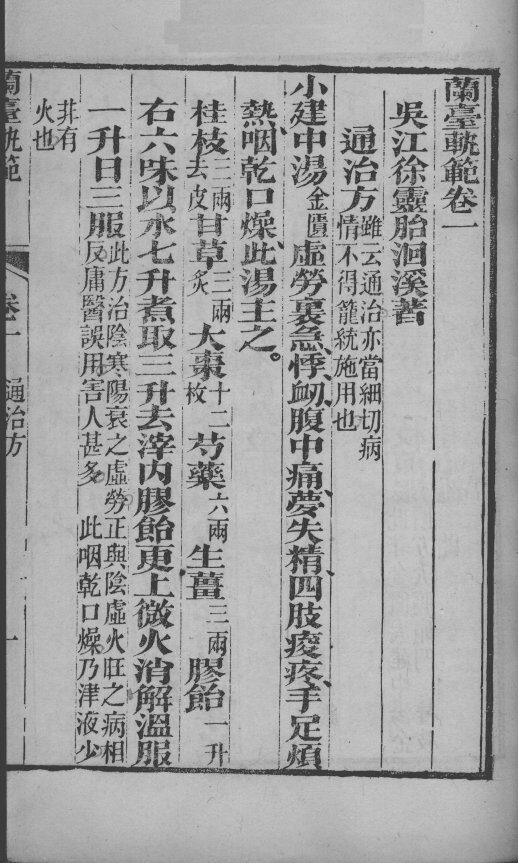 蘭臺軌範卷一
吳江徐靈胎洄溪著
通治方雖云通治亦當細切病
情不得籠統施用也
小建中湯金匱虛勞裏急、悸、衄、腹中痛、夢失精、四肢痠疼、手足煩
熱、咽乾口燥、此湯主之。
桂枝三兩去皮甘草三兩炙大棗十二枚芍藥六兩生薑三兩膠飴一升
右六味以水七升煮取三升去滓內膠飴更上微火消解溫服
一升日三服此方治陰寒陽衰之虛勞正與陰虛火旺之病相
反庸醫誤用害人甚多此咽乾口燥乃津液少
非有
火也
蘭臺軌範
卷一
通治方
一